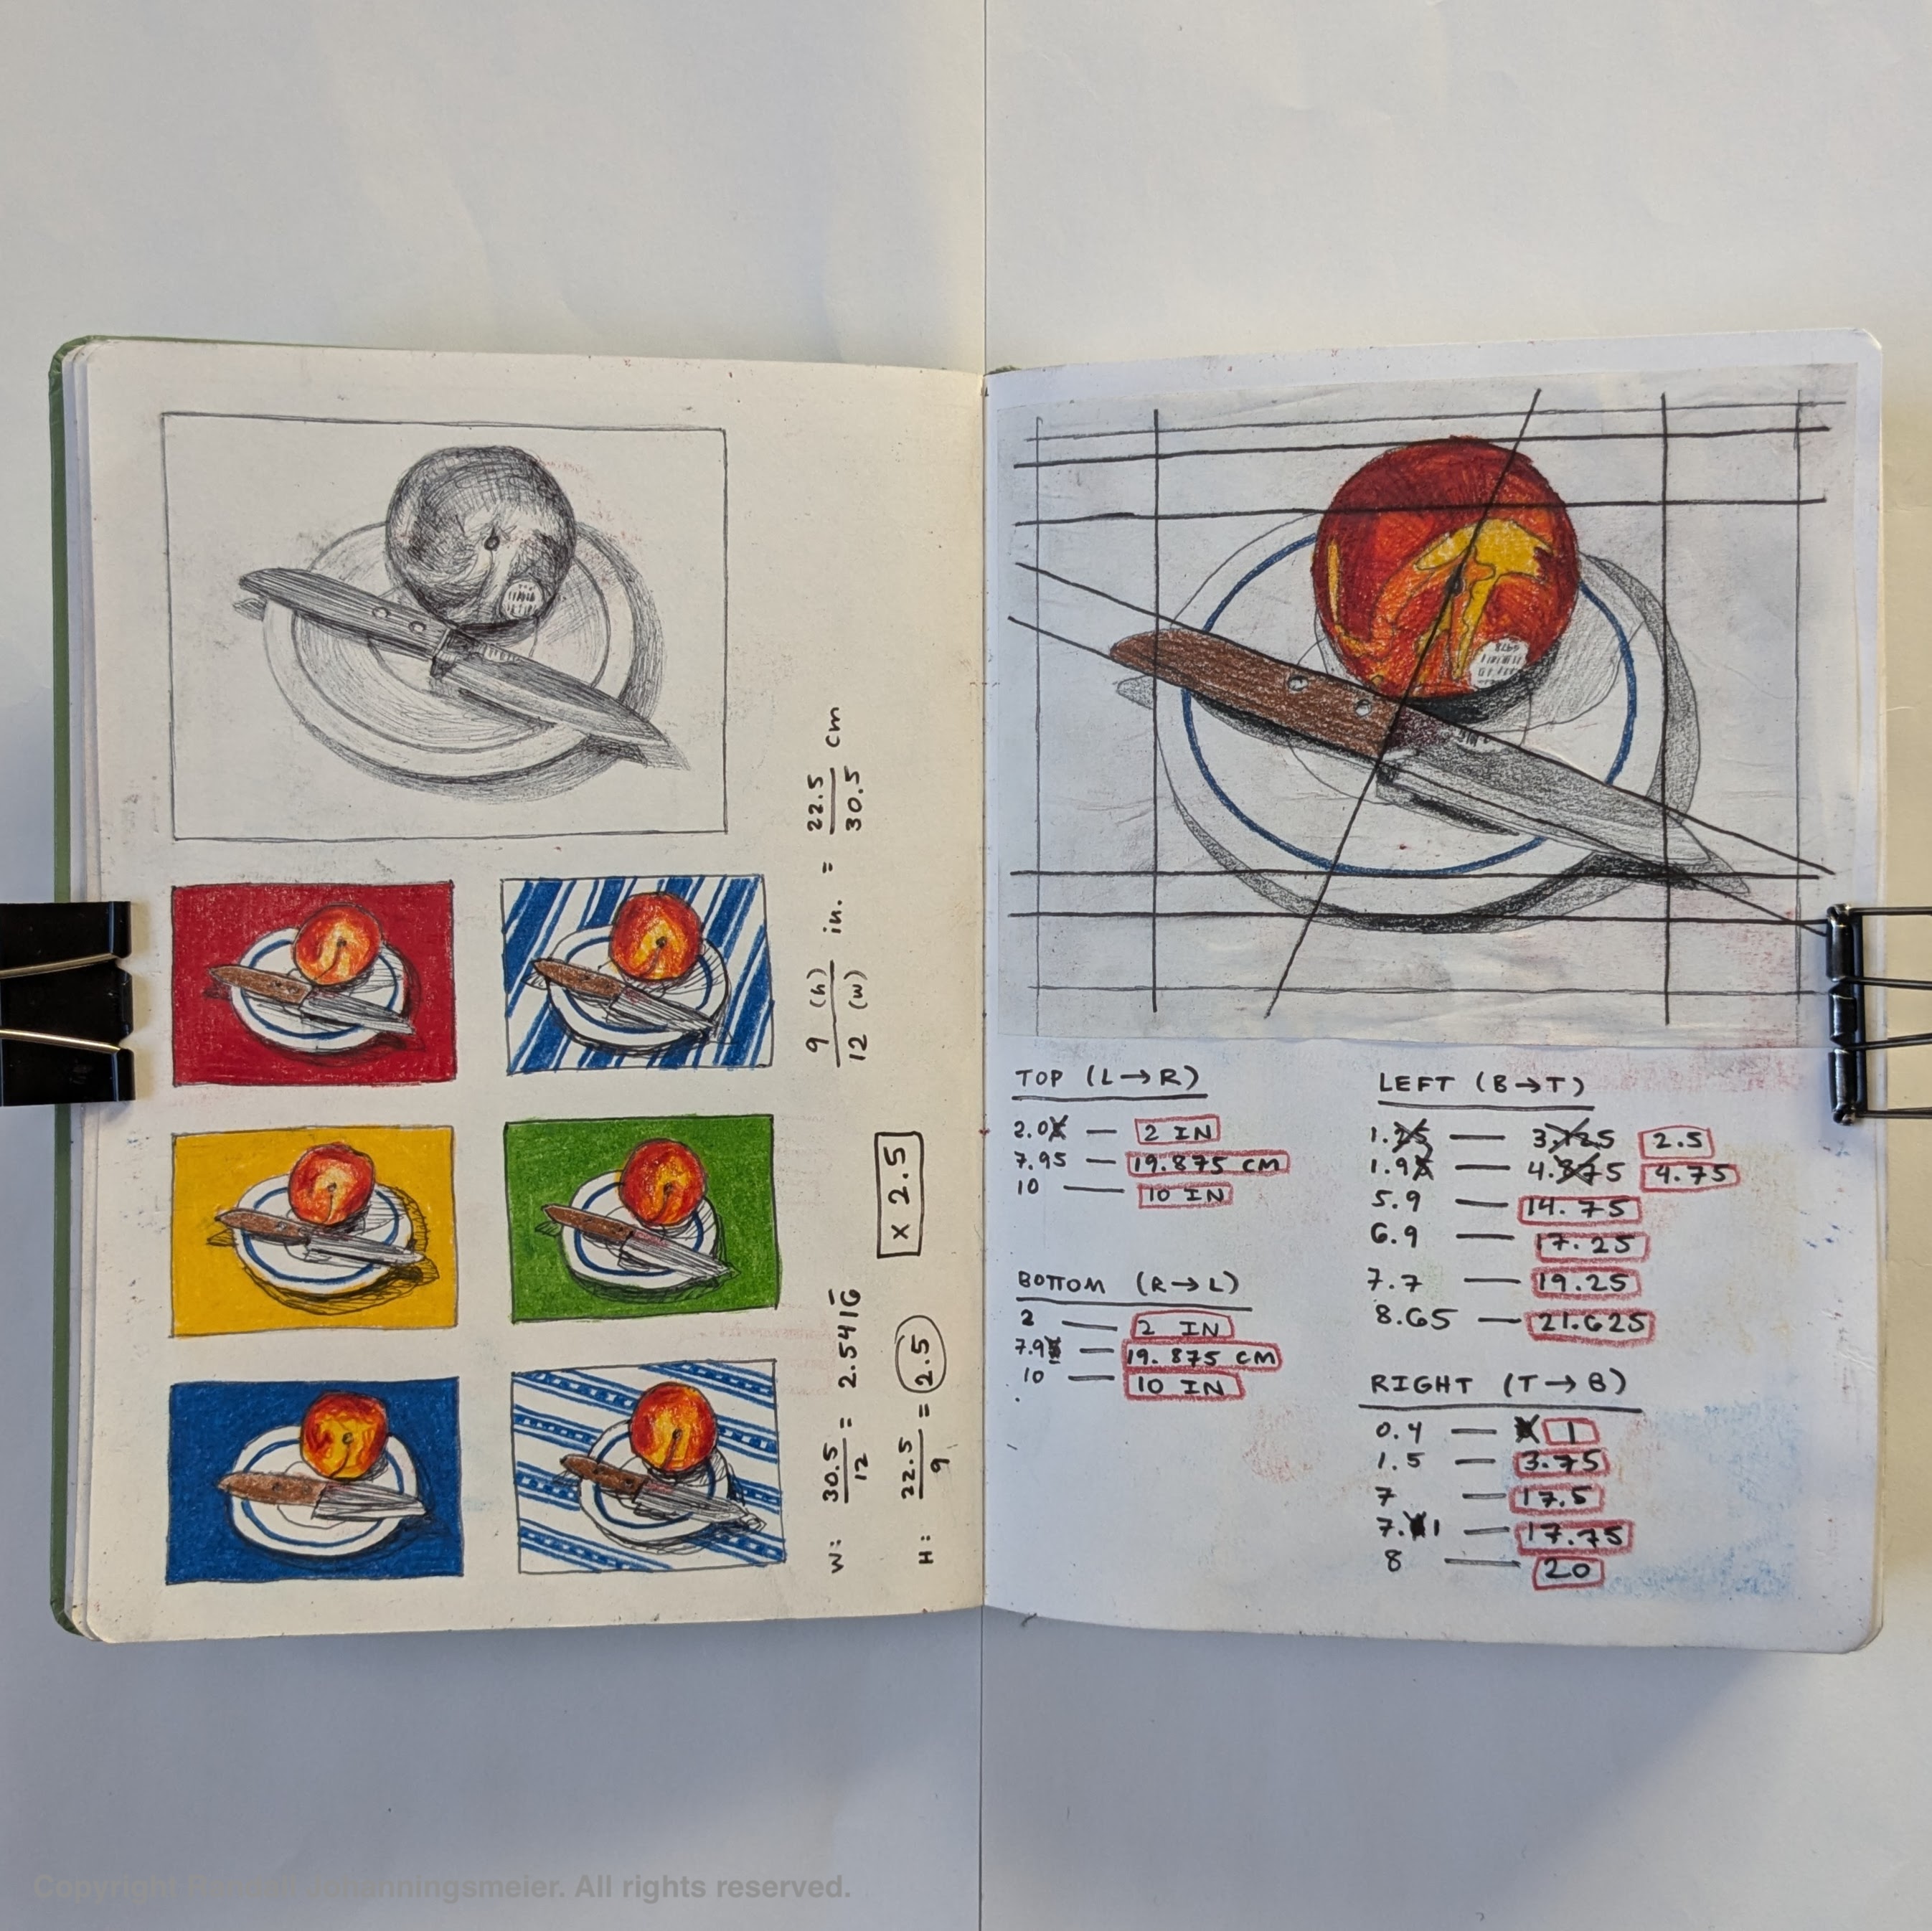 9 (h) in. = 22.5 cm
12 (w) 30.5
x 2.5
W: 30.5 = 2.5416
12
H: 22.5 = 2.5
9
TOP (L→R)
2.0 — 2 IN
7.95 — 19.875 CM
10 — 10 IN
BOTTOM (R→L)
2 — 2 IN
7.9 — 19.875 CM
10 — 10 IN
LEFT (B→T)
1. — 3.125 2.5
1.9 — 4.875 4.75
5.9 — 14.75
6.9 — 17.25
7.7 — 19.25
8.65 — 21.625
RIGHT (T→B)
0.4 — 1
1.5 — 3.75
7 — 17.5
7.1 — 17.75
8 — 20
Copyright Johanningsmeier. All rights reserved.